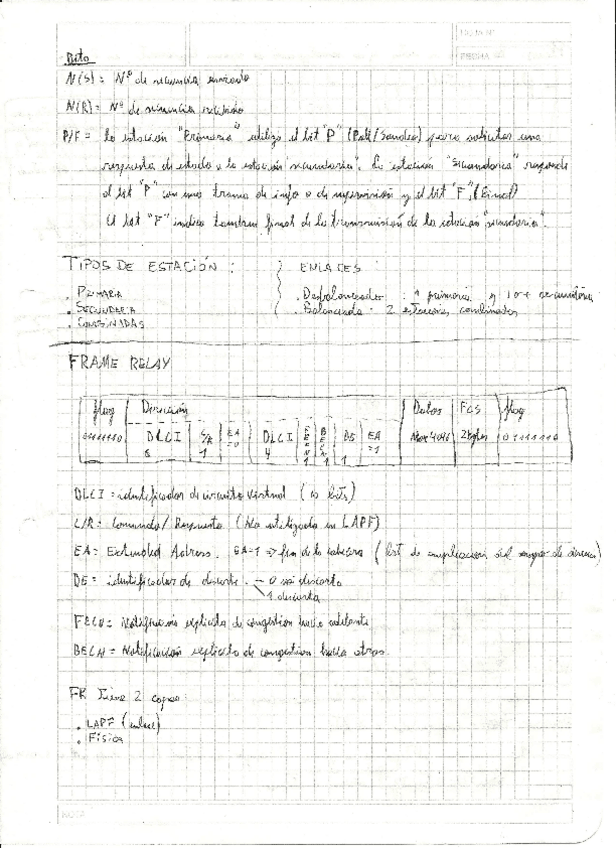 HOJA Nº
FECHA
Bits
N(S) = Nº de secuencia enviado
N(R) = Nº de secuencia recibido
P/F = La estación "Primaria" utiliza el bit "P" (Poll/Sondeo) para solicitar una
respuesta de estado a la estación "secundaria". La estación "secundaria" responde
el bit "P" con una trama de info o de supervisión y el bit "F" (Final)
El bit "F" indica también final de la transmisión de la estación "secundaria".
TIPOS DE ESTACIÓN : ENLACES :
. PRIMARIA . Desbalanceados : 1 primaria y 1 o + secundarias
. SECUNDARIA . Balanceada : 2 estaciones combinadas
. COMBINADAS
FRAME RELAY
flag Dirección Datos FCS flag
01111110 DLCI C/R EA =0 DLCI FECN BECN DE EA =1 Max 4096 2 bytes 01111110
6 1 4 1 1 1
DLCI = identificador de circuito virtual (10 bits)
C/R = Comando / Respuesta (No utilizado en LAPF)
EA = Extended Adress. EA=1 => fin de la cabecera (bit de ampliación del campo de dirección)
DE = identificador de descarte. - 0 no descarta
1 descarta
FECN = Notificación explicita de congestion hacia adelante
BECN = Notificación explicita de congestion hacia atras.
FR Tiene 2 capas:
. LAPF (enlace)
. Física